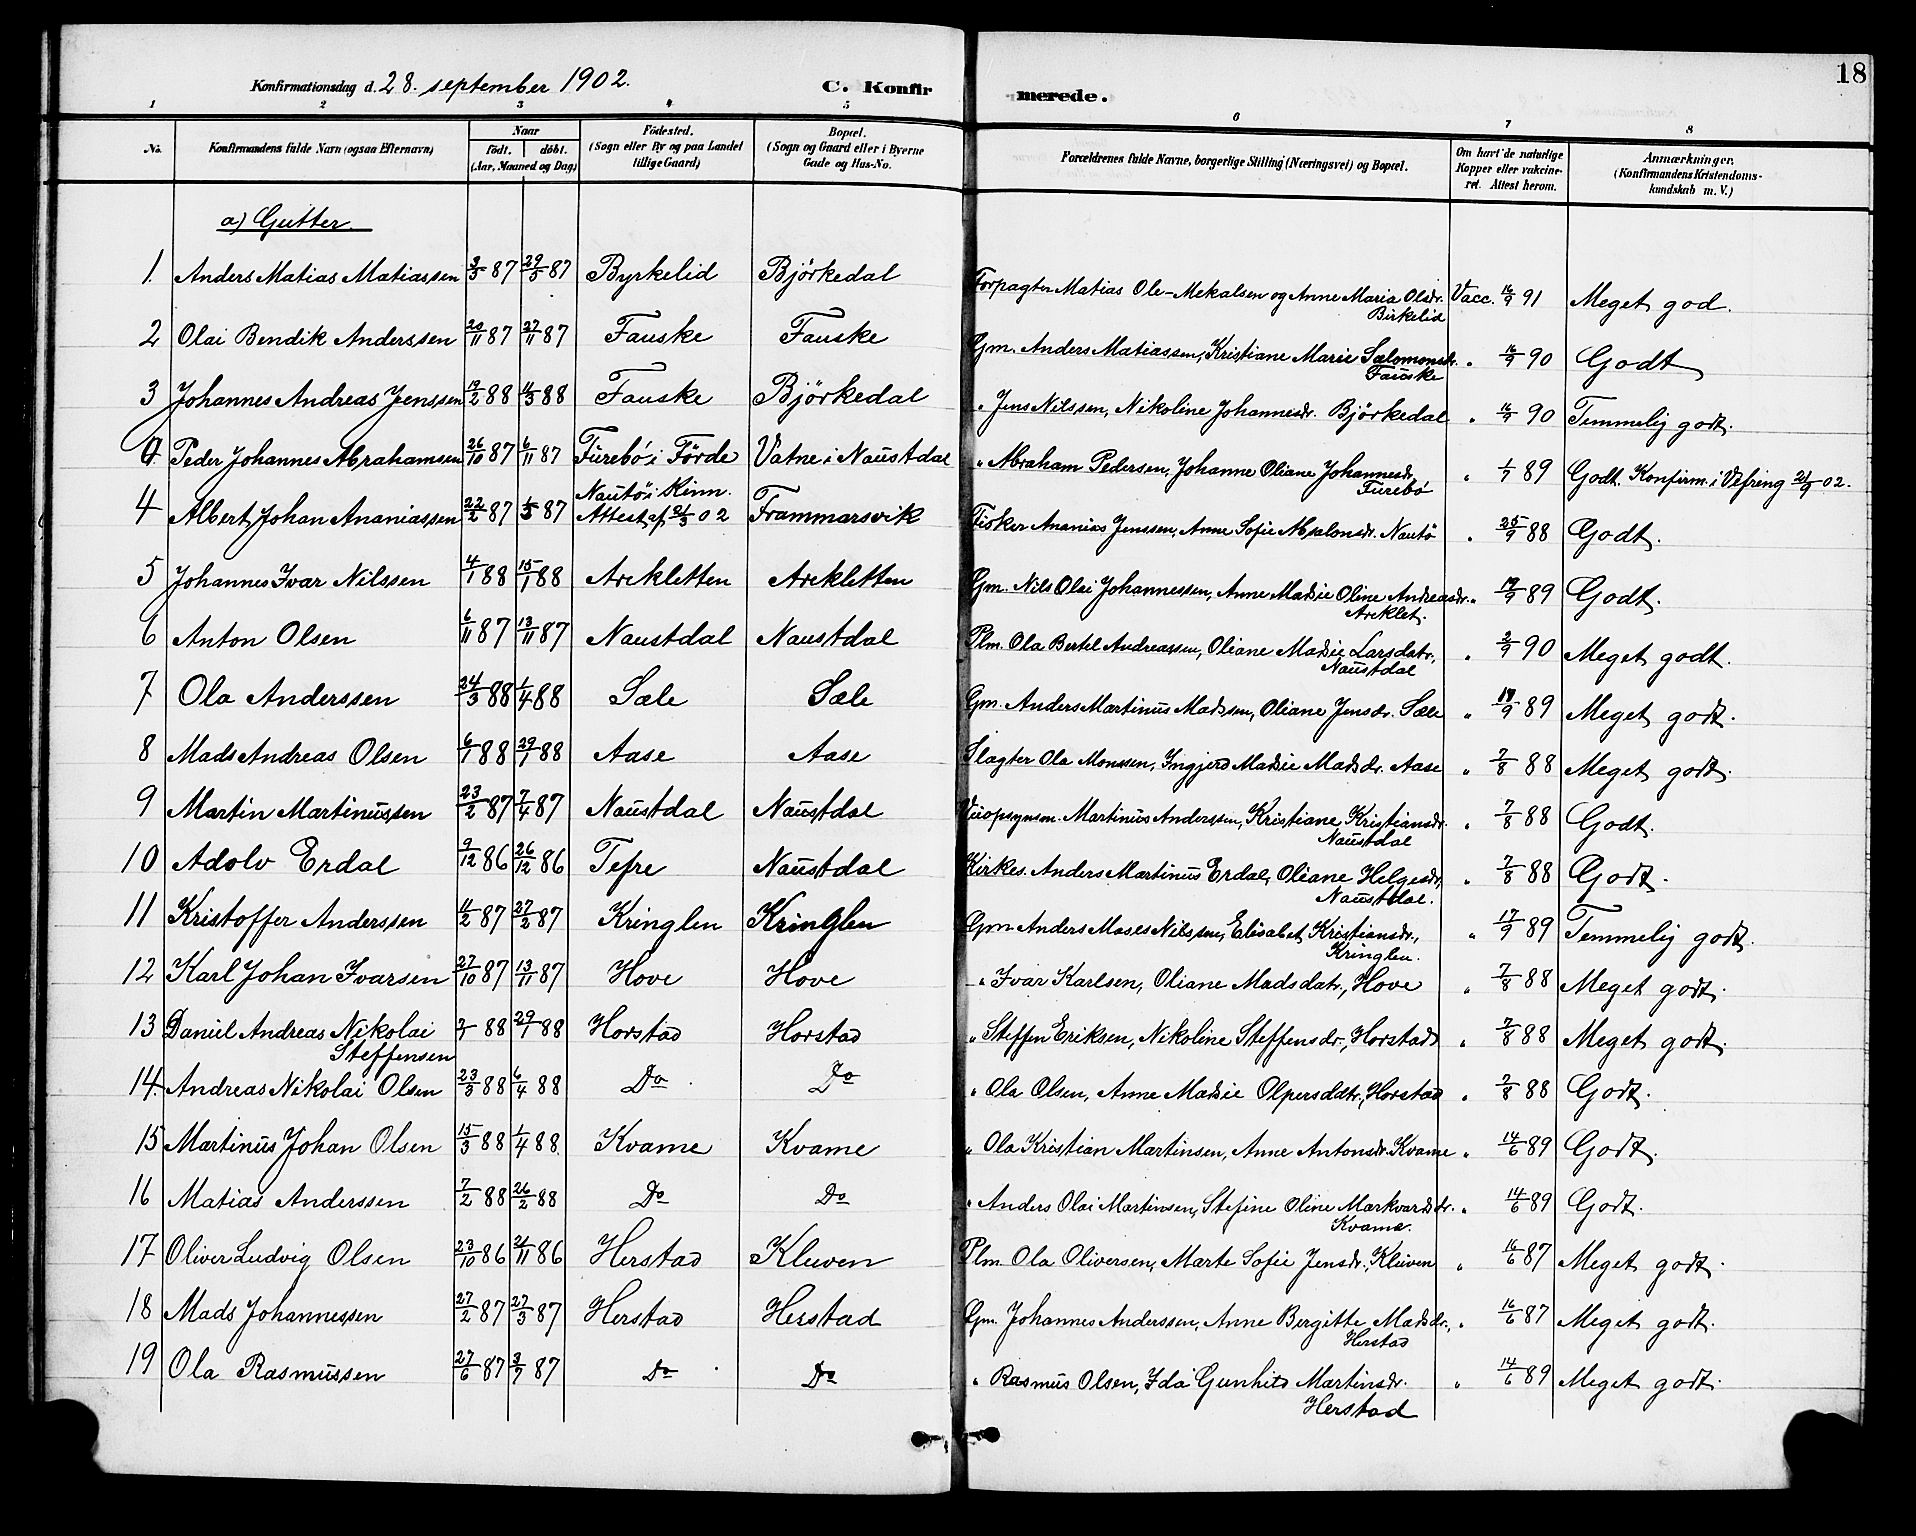 18
Konfirmationsdag d. 28. september 1902.
C. Konfirmerede.
1 2 3 4 5 6 7 8
No. | Konfirmandens fulde Navn (ogsaa Efternavn) | Naar født. døbt. (Aar, Maaned og Dag) | Fødested. (Sogn eller By og paa Landet tillige Gaard) | Bopæl. (Sogn og Gaard eller i Byerne Gade og Hus-No. | Forældrenes fulde Navne, borgerlige Stilling (Næringsvei) og Bopæl. | Om havt de naturlige Kopper eller vakcineret. Attest herom. | Anmærkninger. (Konfirmandens Kristendomskundskab m. V.)
a) Gutter.
1. Anders Matias Matiassen 3/5 87 29/5 87 Byrkelid Björkedal Forpagter Matias Ole-Mekalsen og Anne Maria Olsdr. Birkelid Vacc. 16/9 91 Meget god.
2 Olai Bendik Anderssen 20/11 87 27/11 87 Fauske Fauske Gm. Anders Matiassen, Kristiane Marie Salomonsdr. Fauske " 16/9 90 Godt
3 Johannes Andreas Jenssen 19/2 88 11/3 88 Fauske Björkedal " Jens Nilssen, Nikoline Johannesdr. Björkedal " 16/9 90 Temmelig godt.
0. Peder Johannes Abrahamsen 26/10 87 6/11 87 Furebö i Förde Vatne i Naustdal " Abraham Pedersen, Johanne Oliane Johannesdr, Furebö " 1/7 89 Godt. Konfirm. i Vefring 21/9 02.
4 Albert Johan Ananiassen 22/2 87 1/5 87 Nautö i Kinn. Attest af 21/3 02 Frammarsvik Fisker Ananias Jenssen, Anne Sofie Absalonsdr. Nautö " 25/9 88 Godt.
5 Johannes Ivar Nilssen 4/1 88 15/1 88 Arekletten Arekletten Gm. Nils Olai Johannessen, Anne Madsie Oline Andreasdr. Areklet. " 19/9 89 Godt.
6 Anton Olsen 6/11 87 13/11 87 Naustdal Naustdal Plm. Ola Bertel Andreassen, Oliane Madsie Larsdatr, Naustdal " 2/9 90 Meget godt.
7 Ola Anderssen 24/3 88 1/4 88 Sæle Sæle Gm. Anders Martinus Madssen, Oliane Jensdr. Sæle " 19/9 89 Meget godt.
8 Mads Andreas Olsen 6/1 88 29/1 88 Aase Aase Slagter Ola Monssen, Ingjerd Madsie Madsdr. Aase " 7/8 88 Meget godt.
9 Martin Martinussen 23/2 87 7/4 87 Naustdal Naustdal Veiopsynsm. Martinus Anderssen, Kristiane Kristiansdr. Naustdal " 7/8 88 Godt.
10 Adolv Erdal 9/12 86 26/12 86 Tefre Naustdal Kirkes. Anders Martinus Erdal, Oliane Helgesdr, Naustdal. " 7/8 88 Godt.
11 Kristoffer Anderssen 11/2 87 27/2 87 Kringlen Kringlen Gm Anders Moses Nilssen, Elisabet Kristiansdr., Kringlen. " 17/9 89 Temmelig godt.
12 Karl Johan Ivarsen 27/10 87 13/11 87 Hove Hove " Ivar Karlsen, Oliane Madsdatr, Hove " 7/8 88 Meget godt.
13 Daniel Andreas Nikolai Steffensen 88 29/1 88 Horstad Horstad " Steffen Eriksen, Nikoline Steffensdr, Horstad " 7/8 88 Meget godt.
14. Andreas Nikolai Olsen 23/3 88 6/4 88 Do Do " Ola Olsen, Anne Madsie Olpersdatr, Horstad " 7/8 88 Godt.
15 Martinus Johan Olsen 15/3 88 1/4 88 Kvame Kvame " Ola Kristian Martinsen, Anne Antonsdr. Kvame " 14/6 89 Godt.
16 Matias Anderssen 7/2 88 26/2 88 Do Do " Anders Olai Martinsen, Stefine Oline Markvardsdr. Kvame. " 14/6 89 Godt.
17 Oliver Ludvig Olsen 23/10 86 21/11 86 Herstad Kleven Plm. Ola Oliversen, Marte Sofie Jensdr., Kleiven " 16/6 87 Meget godt.
18 Mads Johannessen 27/2 87 27/3 87 Herstad Herstad Gm. Johannes Anderssen, Anne Bergitte Madsdr., Herstad " 16/6 87 Meget godt.
19 Ola Rasmussen 27/6 87 3/7 87 Do Do " Rasmus Olsen, Ida Gunhild Martinsdr. Herstad " 14/6 89 Meget godt.